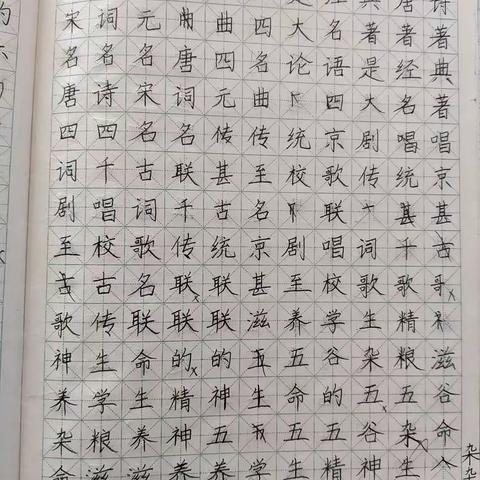 宋词元曲曲四大名著著著
名名名唐四名论语是经典
唐诗宋词元曲四大名著
四四名名传传统京剧唱唱
词千古联甚至校歌传统京
剧唱词千古名联甚甚
至校歌传统京剧唱词千古
古古名联联甚至校歌歌
歌传联联联滋养学生精
神生命的的五五谷杂粮滋
养学生精神生命的五五谷
杂粮养神五五五谷杂命
命滋滋养养学生精神生
杂杂